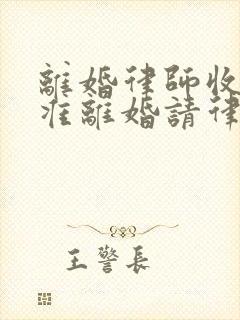 離婚律師收
准離婚請律
王警長